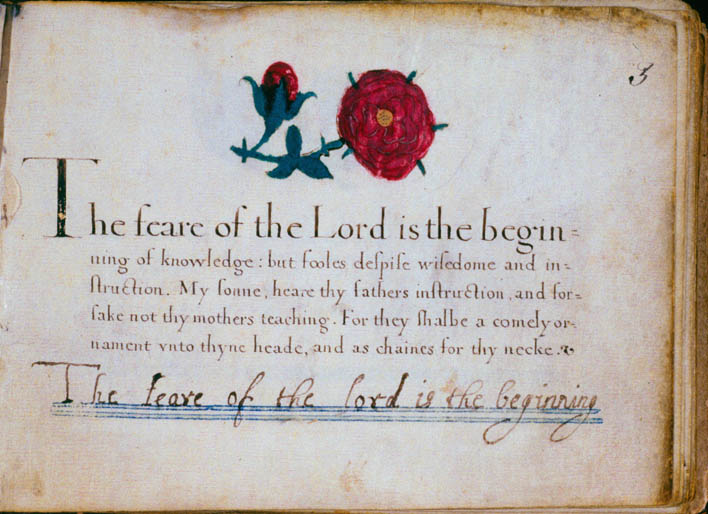 3
The feare of the Lord is the begin=
ning of knowledge: but fooles deſpiſe wiſedome and in=
ſtruction. My ſonne, heare thy fathers inſtruction, and for=
ſake not thy mothers teaching. For they ſhalbe a comely or=
nament vnto thyne heade, and as chaines for thy necke.
The feare of the lord is the beginning